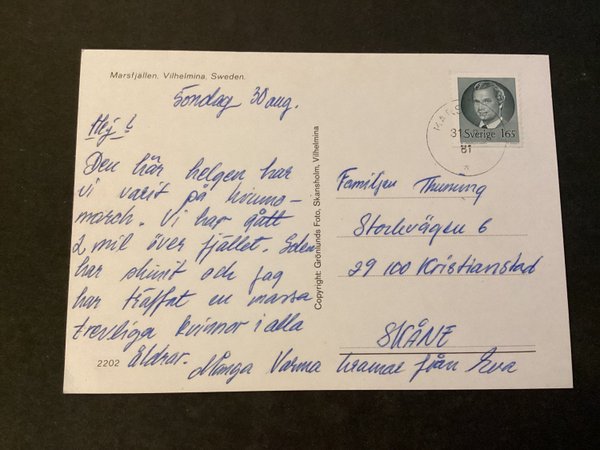 Marsfjällen, Vilhelmina, Sweden.
Söndag 30 aug.
Hej!
Den här helgen har
vi varit på kvinno-
march. Vi har gått
2 mil över fjället. Solen
har skinit och jag
har träffat en massa
trevliga kvinnor i alla
åldrar. Många Varma kramar från Eva
2202
Copyright: Grönlunds Foto, Skansholm, Vilhelmina
31
81
Sverige 165
Familjen Thuning
Storkvägen 6
29 100 Kristianstad
SKÅNE